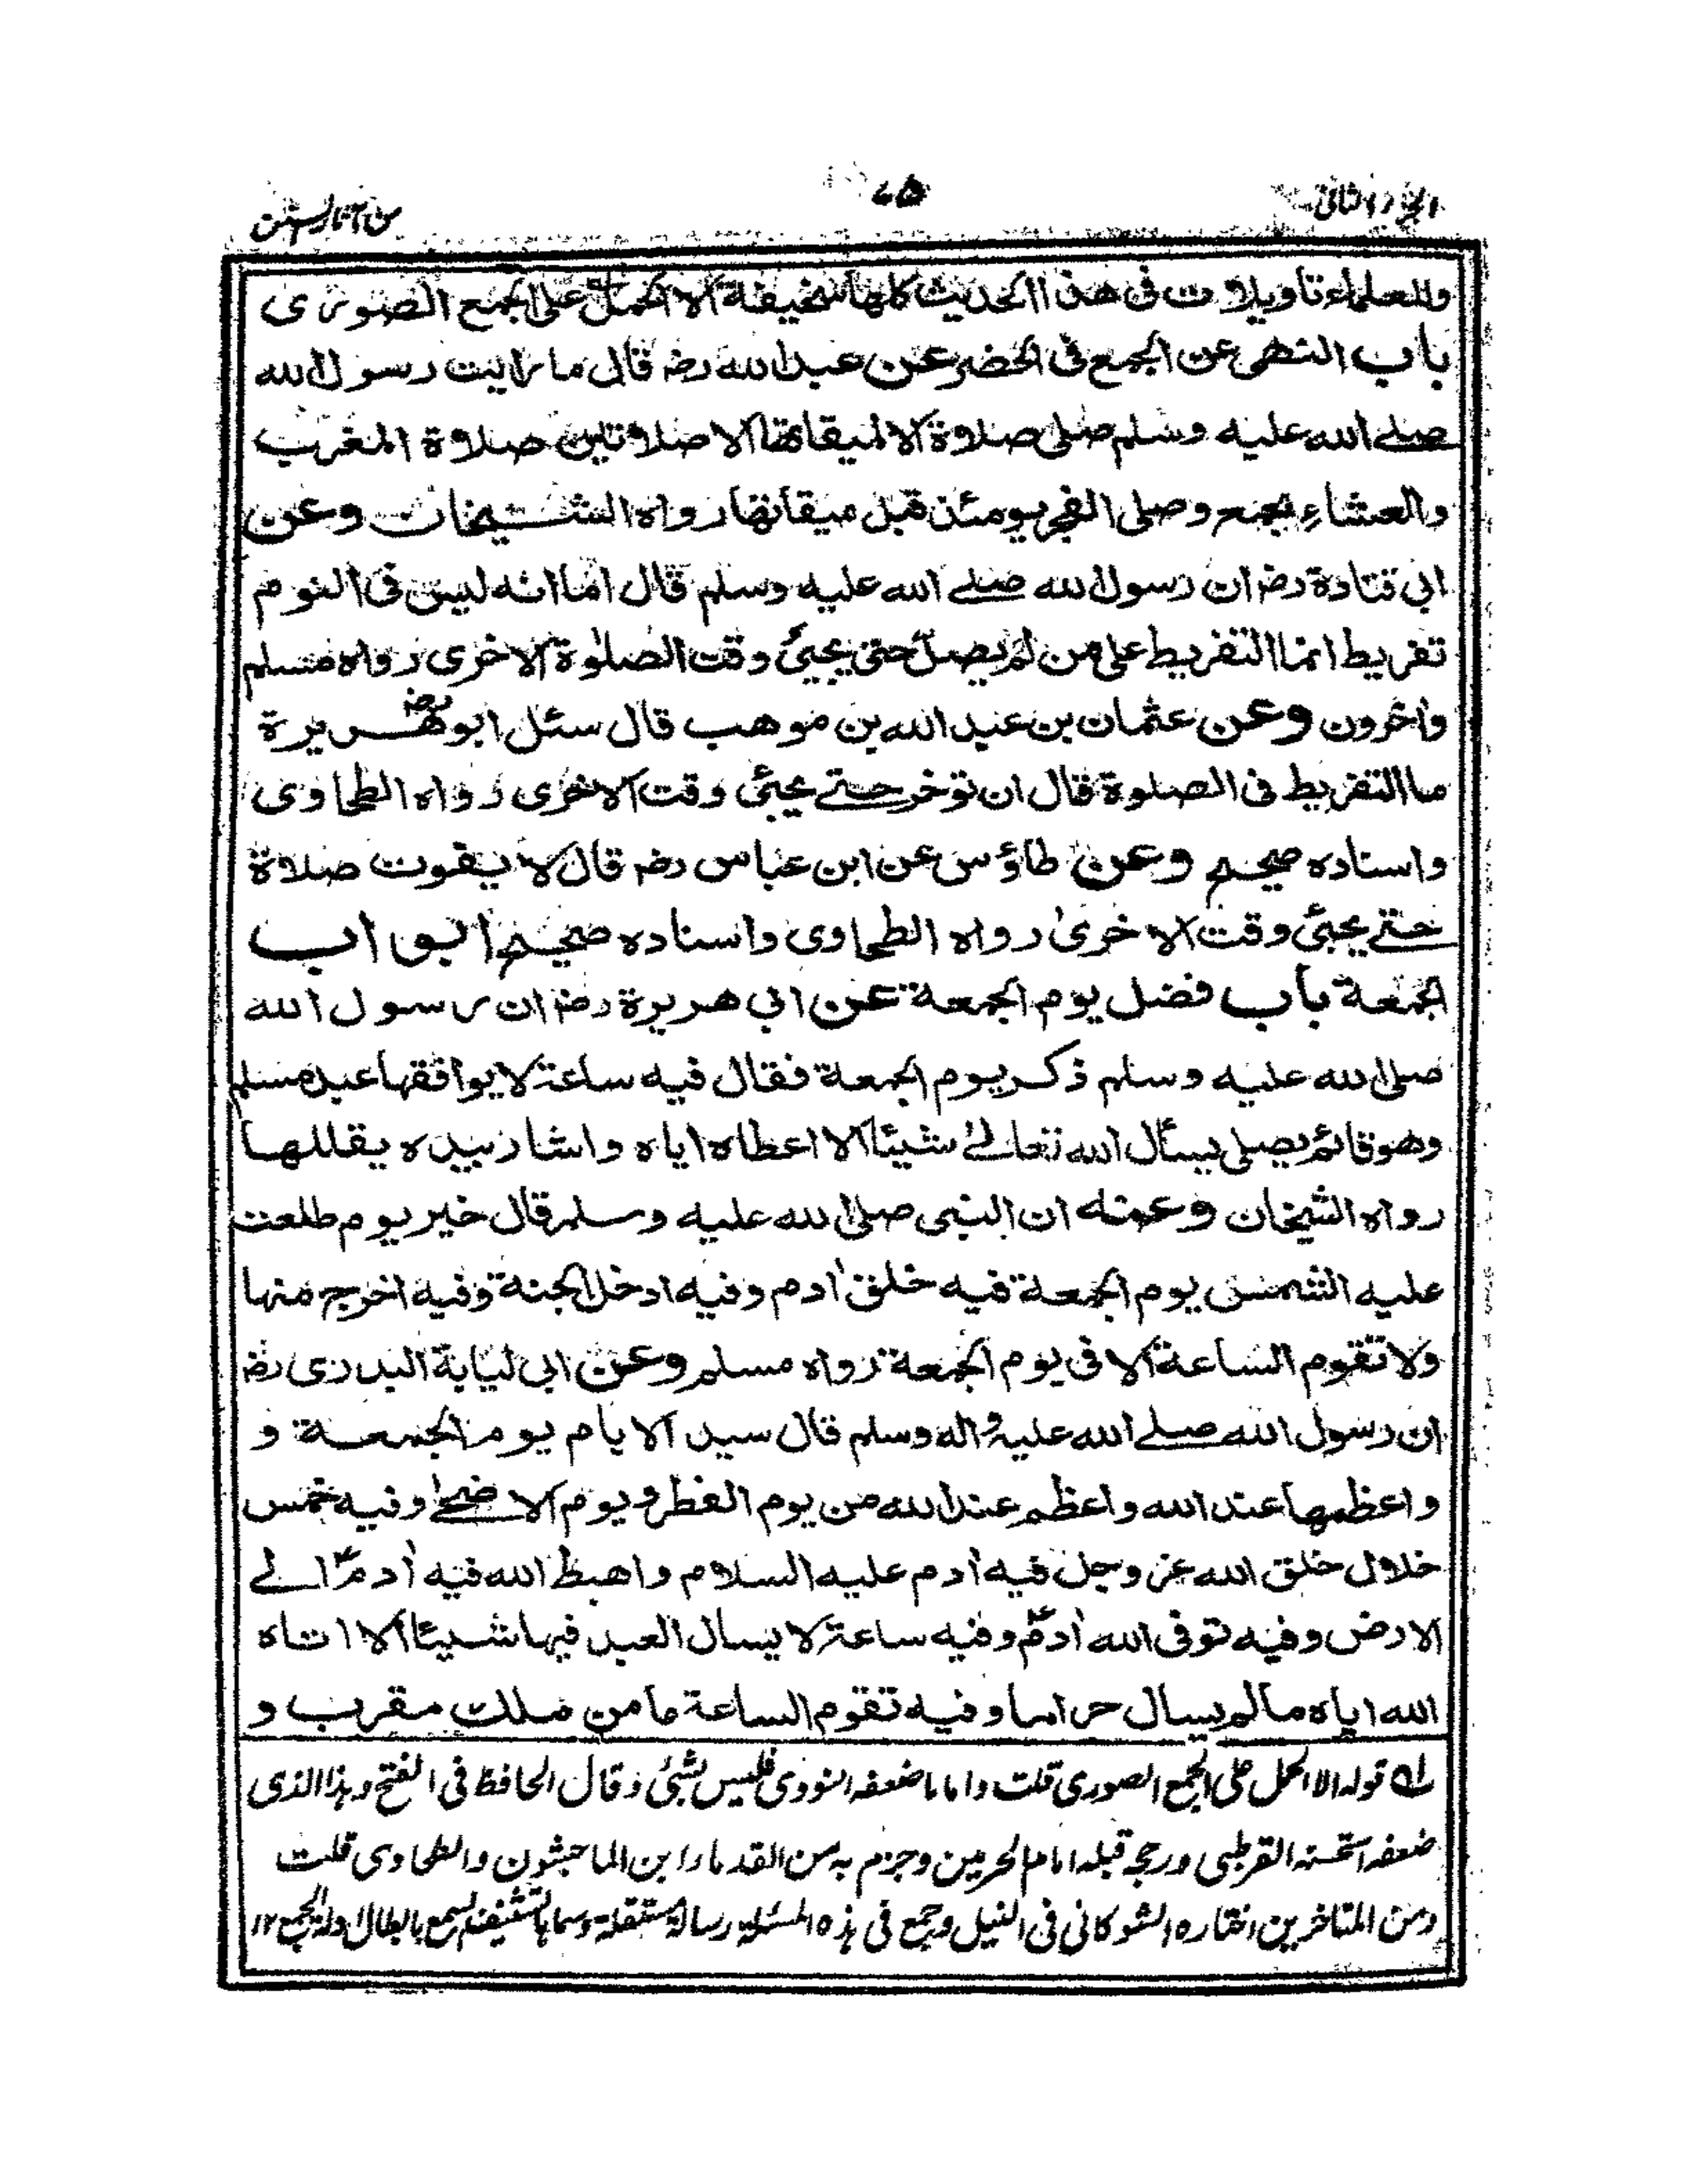 الجزء الثانى
٧٥
من آثار السنن
وللعلماء تاويلات فى هذا الحديث كلها سخيفة الا الحمل على الجمع الصورى
باب النهى عن الجمع فى الحضر عن عبد الله رضـ قال ما رايت رسول الله
صلے الله عليه وسلم صلى صلاة الا لميقاتها الا صلاتين صلاة المغرب
والعشاء بجمع وصلى الفجر يومئذ قبل ميقاتها رواه الشيخان وعن
ابى قتادة رضـ ان رسول الله صلے الله عليه وسلم قال اما انه ليس فى النوم
تفريط انما التفريط على من لم يصل حتى يجيئ وقت الصلوة الاخرى رواه مسلم
واخرون وعن عثمان بن عبد الله بن موهب قال سئل ابو هريرة رضـ
ما التفريط فى الصلوة قال ان توخر حتے يجيئ وقت الاخرى رواه الطحاوى
واسناده صحيح وعن طاؤس عن ابن عباس رضـ قال لا يفوت صلاة
حتے يجيئ وقت الاخرى رواه الطحاوى واسناده صحيح ابواب
الجمعة باب فضل يوم الجمعة عن ابى هريرة رضـ ان رسول الله
صلى الله عليه وسلم ذكر يوم الجمعة فقال فيه ساعة لا يوافقها عبد مسلم
وهو قائم يصلى يسأل الله تعالےٰ شيئا الا اعطاه اياه واشار بيده يقللها
رواه الشيخان وعنه ان النبى صلى الله عليه وسلم قال خير يوم طلعت
عليه الشمس يوم الجمعة فيه خلق اٰدم وفيه ادخل الجنة وفيه اخرج منها
ولا تقوم الساعة الا فى يوم الجمعة رواه مسلم وعن ابى لبابة البدرى رضـ
ان رسول الله صلے الله عليه واله وسلم قال سيد الايام يوم الجمعة و
واعظمها عند الله واعظم عند الله من يوم الفطر ويوم الاضحےٰ وفيه خمس
خلال خلق الله عز وجل فيه اٰدم عليه السلام واهبط الله فيه اٰدمؑ الے
الارض وفيه توفى الله اٰدمؑ وفيه ساعة لا يسال العبد فيها شيئا الا اتاه
الله اياه مالم يسال حراما وفيه تقوم الساعة ما من ملك مقرب و
لـه قوله الا الحمل على الجمع الصورى قلت واما ما ضعفه النووى فليس بشيئ وقال الحافظ فى الفتح وهذا الذى
ضعفه استحسنه القرطبى ورجحه قبله امام الحرمين وجزم به من القدماء ابن الماجشون والطحاوى قلت
ومن المتاخرين اختاره الشوكانى فى النيل وجمع فى هذه المسئلة رسالة مستقلة وسماها تشنيف السمع بابطال ادلة الجمع ١٢